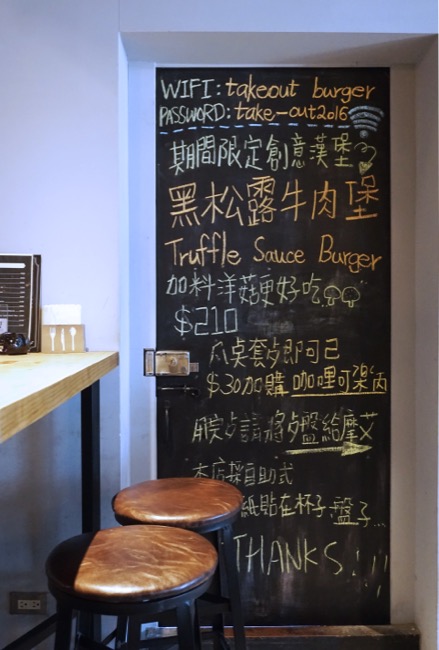 WIFI: takeout burger
PASSWORD: take-out2016
期間限定創意漢堡
黑松露牛肉堡
Truffle Sauce Burger
加料洋菇更好吃
$210
$30加購 咖哩可樂
用完 請將 盤給摩艾
本店採自助式
紙貼在杯子 盤子...
THANKS!!!